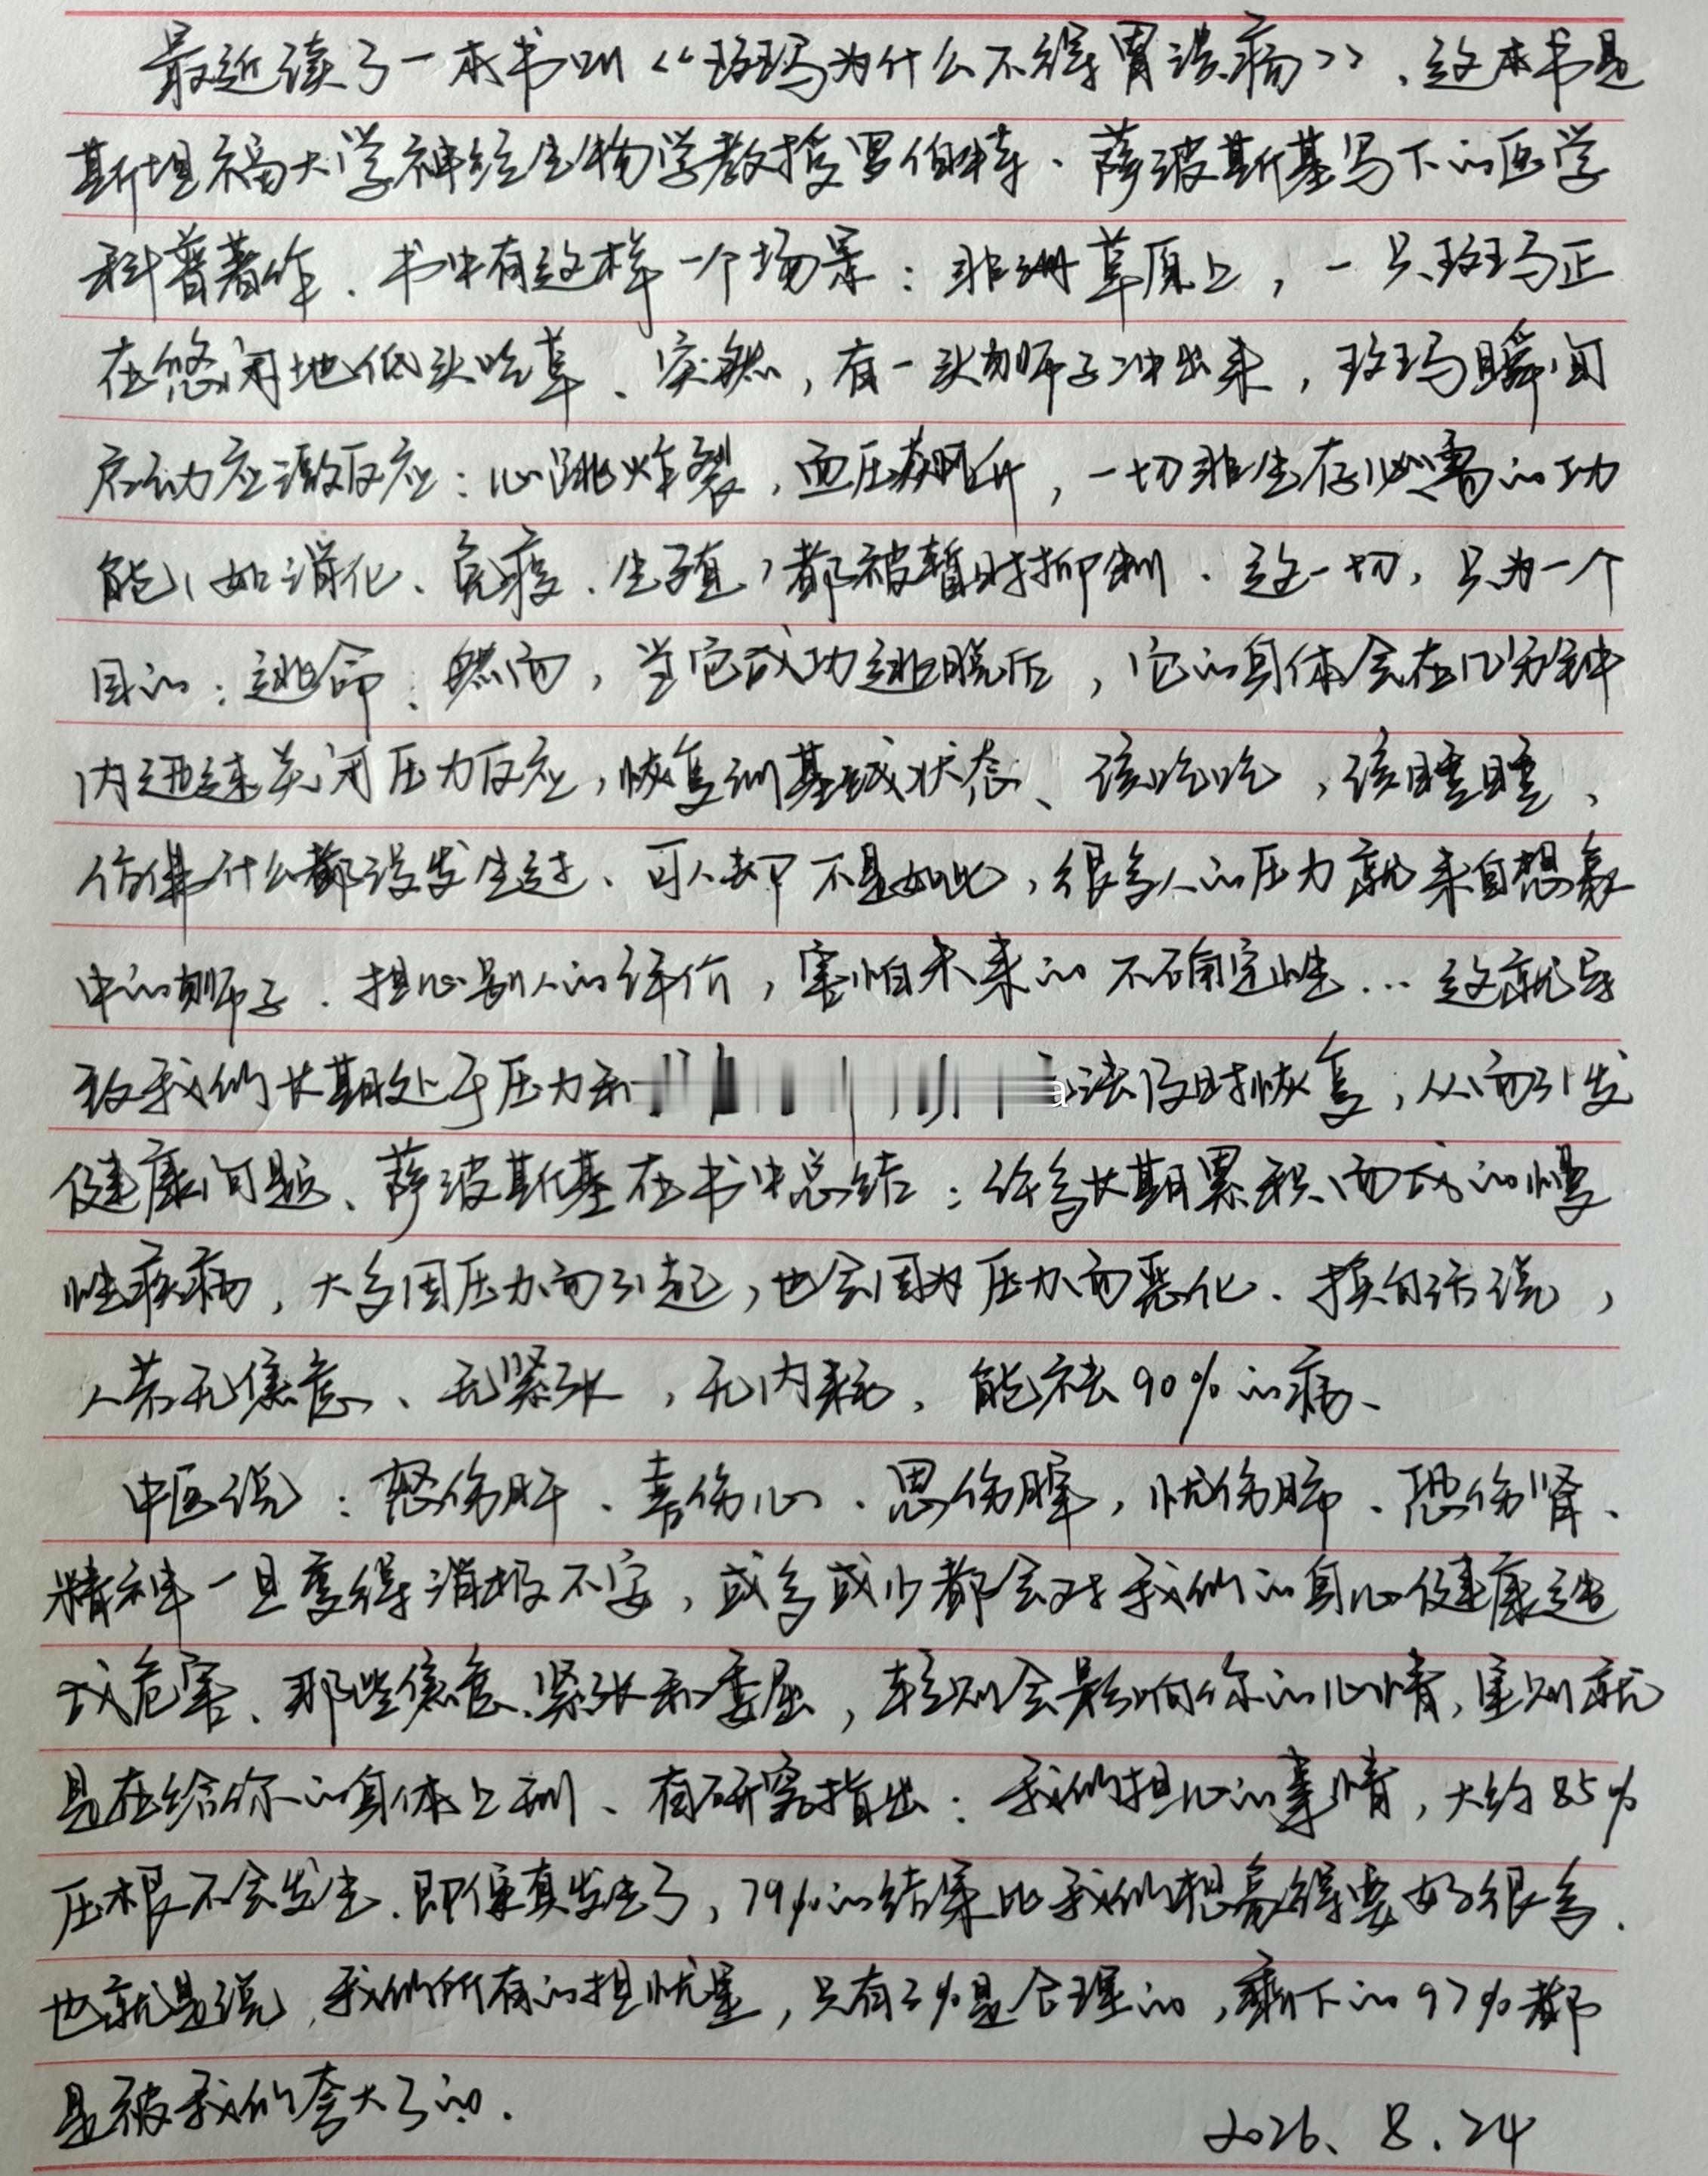 最近读了一本书叫《斑马为什么不得胃溃疡》、这本书是
斯坦福大学神经生物学教授罗伯特·萨波斯基写下的医学
科普著作、书中有这样一个场景：非洲草原上，一只斑马正
在悠闲地低头吃草、突然，有一头狮子冲出来，斑马瞬间
启动应激反应：心跳炸裂，血压飙升，一切非生存必需的功
能（如消化、免疫、生殖）都被暂时抑制、这一切，只为一个
目的：逃命；然而，当它成功逃脱后，它的身体会在几分钟
内迅速关闭压力反应，恢复到基线状态、该吃吃，该睡睡、
仿佛什么都没发生过、可人却不是如此，很多人的压力就来自想象
中的狮子、担心别人的评价，害怕未来的不确定性…这就导
致我们长期处于压力和 a 法及时恢复，从而引发
健康问题、萨波斯基在书中总结：许多长期累积而成的慢
性疾病，大多因压力而引起，也会因为压力而恶化、换句话说，
人若无焦虑、无紧张，无内耗，能祛90%的病、
中医说：怒伤肝、喜伤心、思伤脾，忧伤肺、恐伤肾、
精神一旦变得消极不安，或多或少都会对我们的身心健康造
成危害、那些焦虑、紧张和委屈，轻则会影响你的心情，重则就
是在给你的身体上刑、有研究指出：我们担心的事情，大约85%
压根不会发生、即便真发生了，79%的结果比我们想象得要好很多、
也就是说，我们所有的担忧里，只有3%是合理的，剩下的97%都
是被我们夸大了的.
2026、8.24